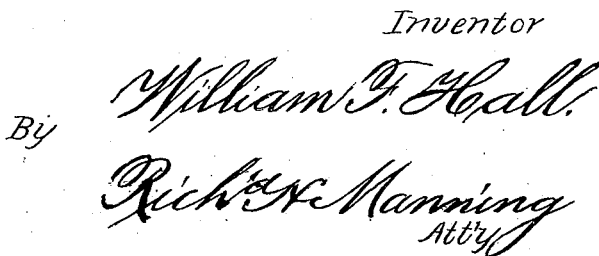 Inventor
William F. Hall.
By
Rich'd N Manning
Att'y